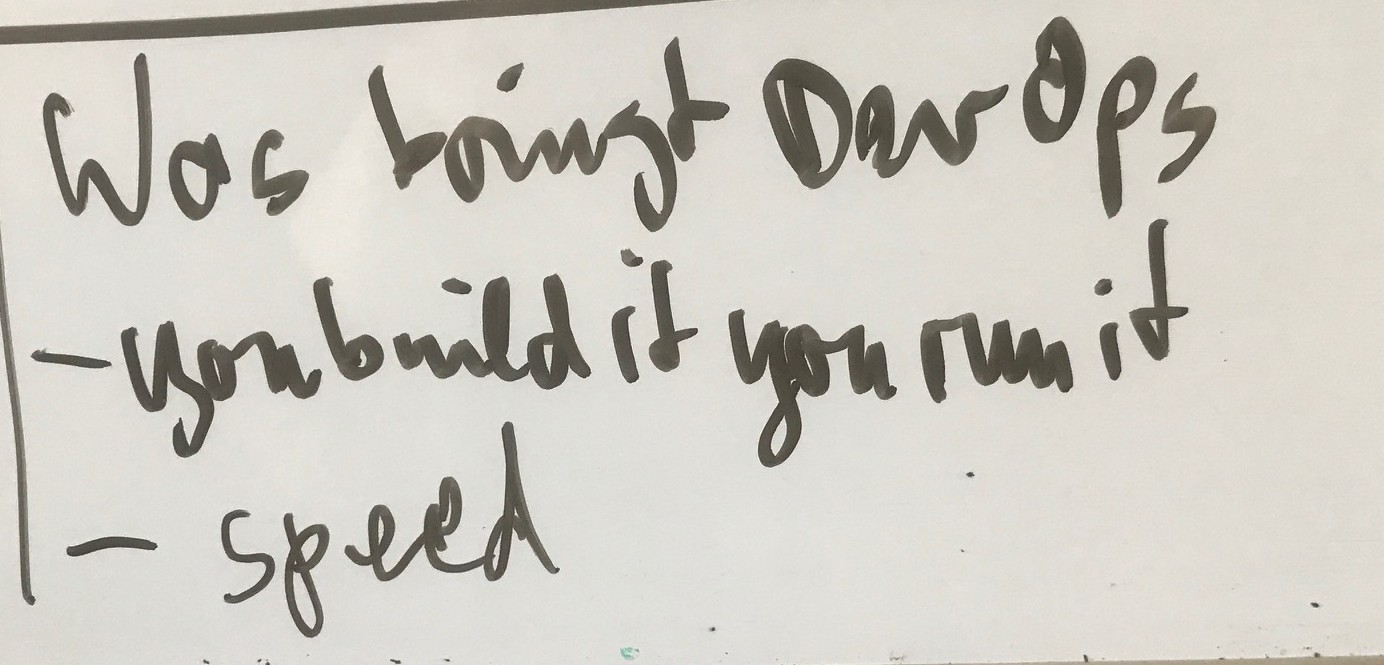 Was bringt DevOps
- you build it you run it
- speed